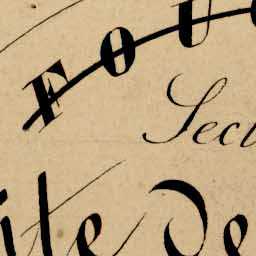 FOU
Sect
ite de